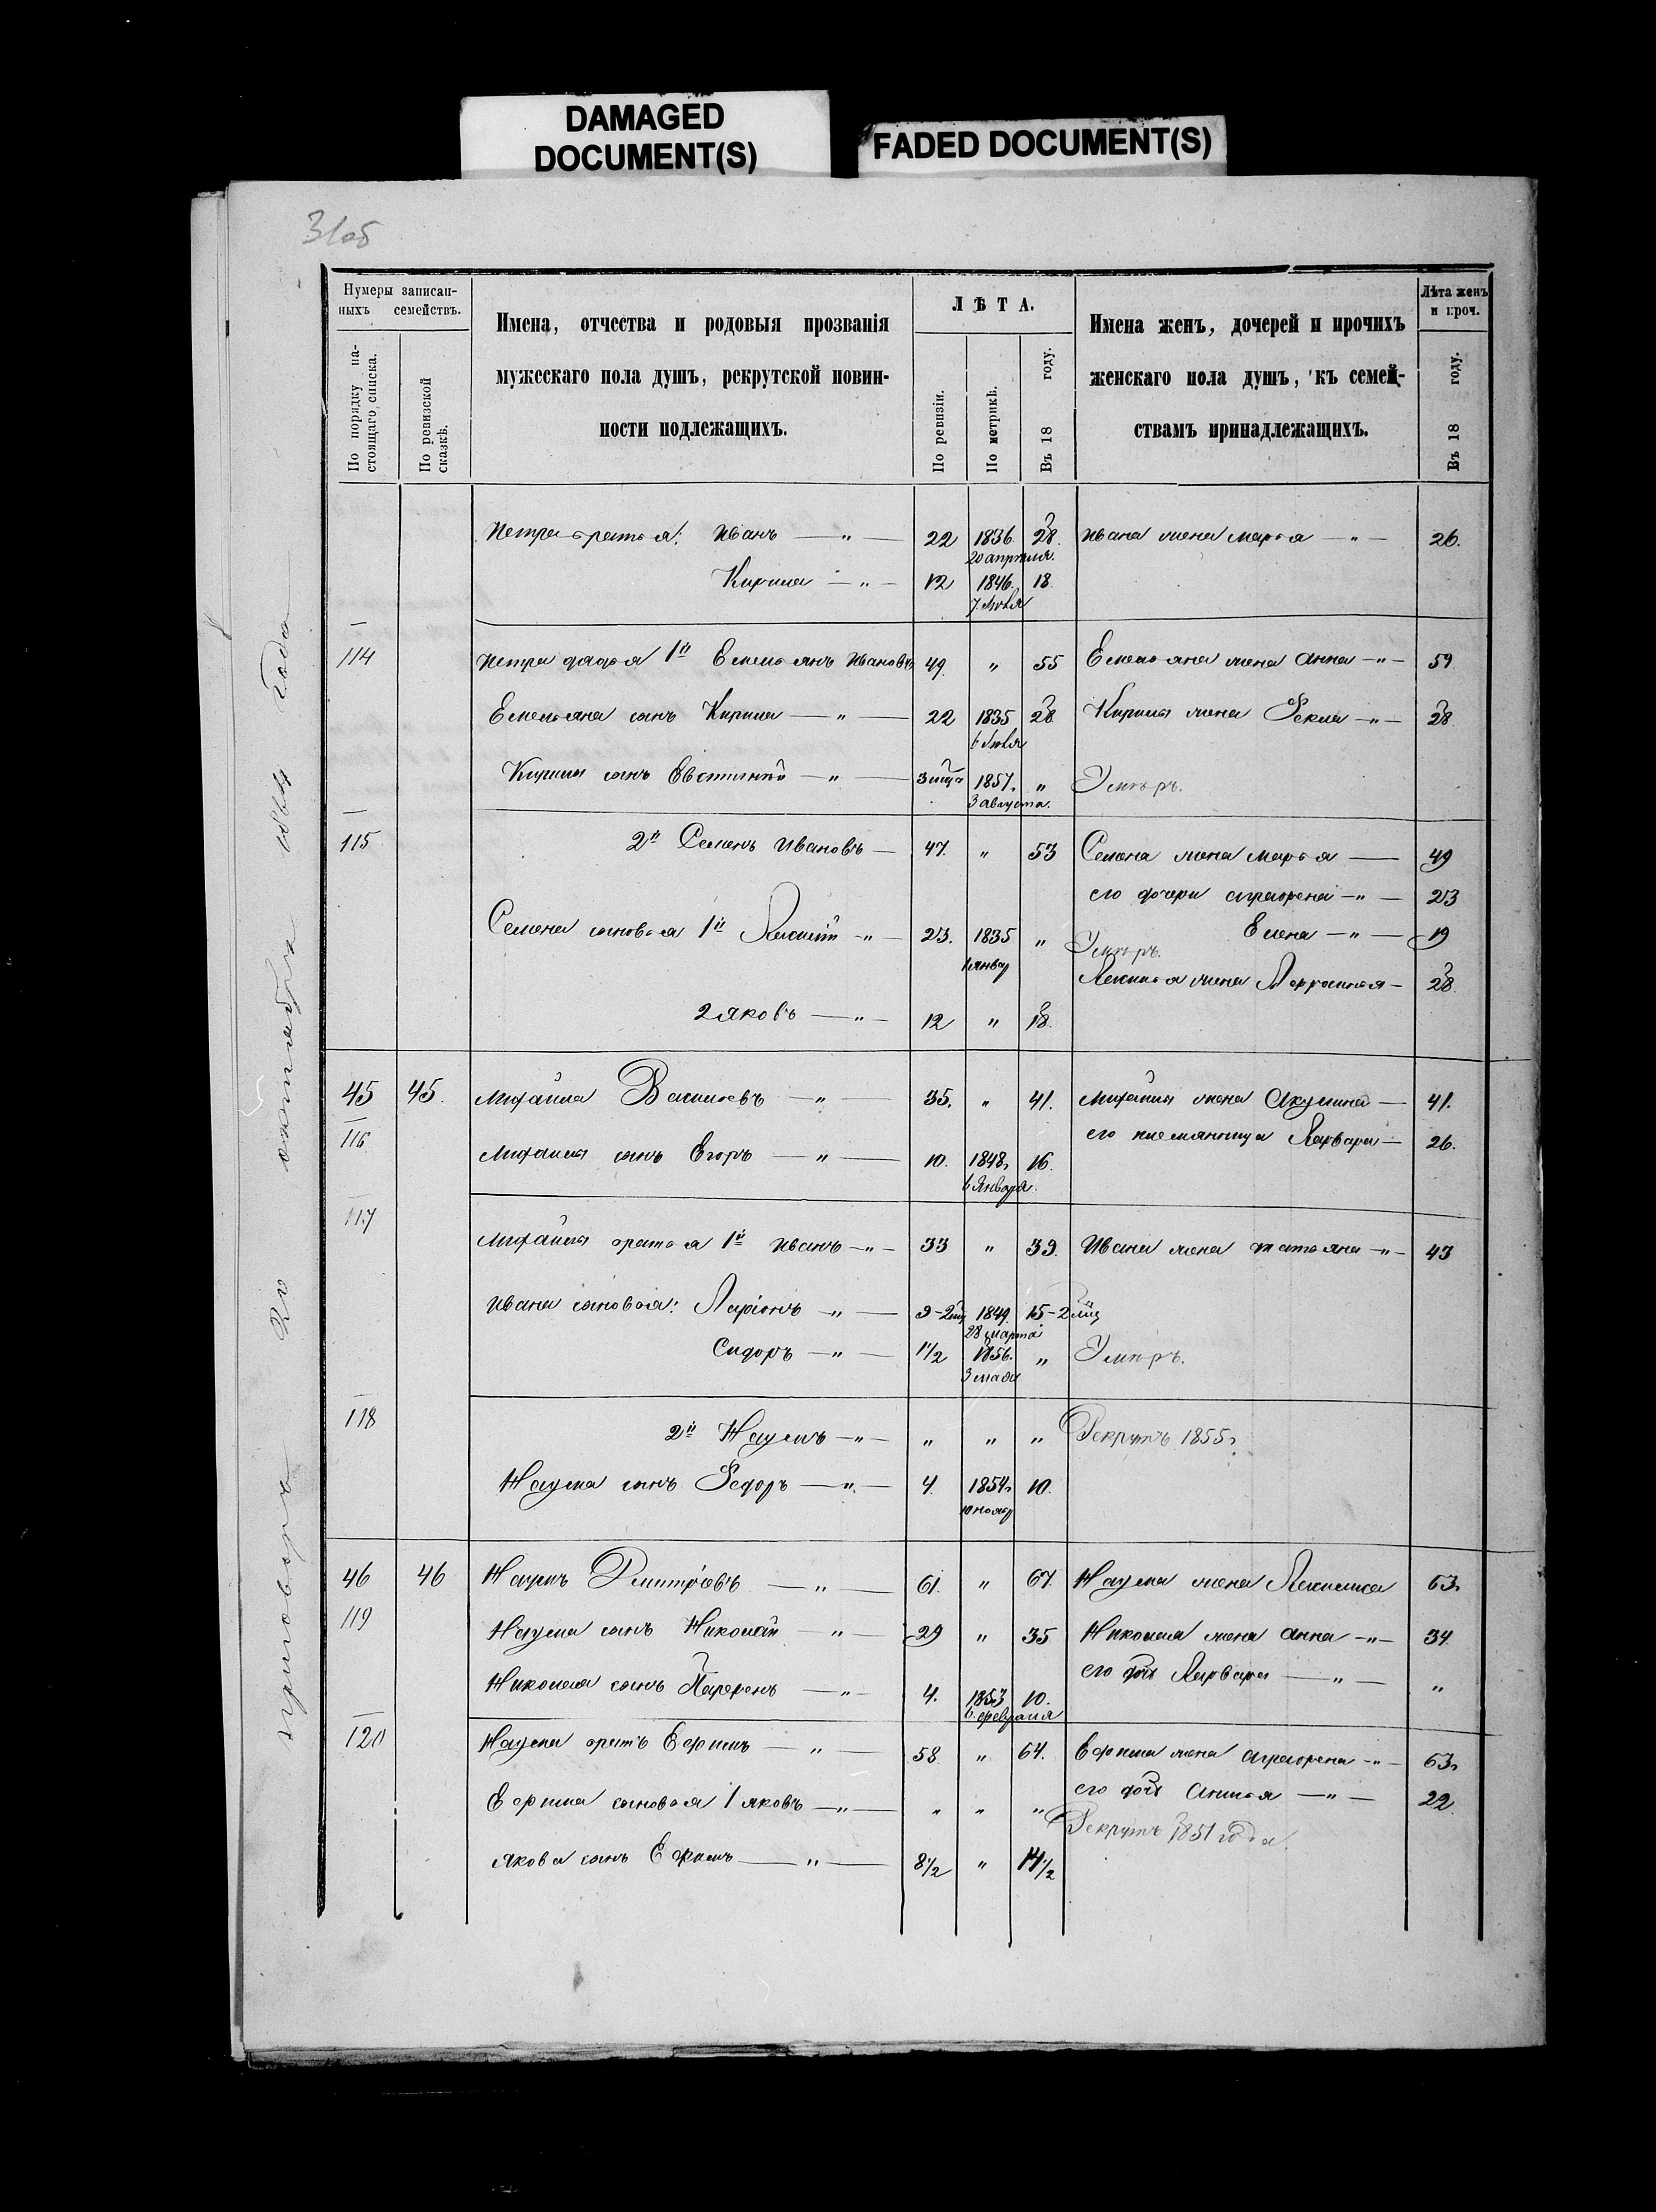 DAMAGED
DOCUMENT(S)
FADED DOCUMENT(S)
31об
Нумеры записан-
ныхъ семействъ.
По порядку на-
стоящаго списка.
По ревизской
сказкѣ.
Имена, отчества и родовыя прозванія
мужескаго пола душъ, рекрутской повин-
ности подлежащихъ.
ЛѢТА.
По ревизіи.
По метрикѣ.
Въ 18 году.
Имена женъ, дочерей и прочихъ
женскаго пола душъ, къ семей-
ствамъ принадлежащихъ.
Лѣта женъ
и проч.
Въ 18 году.
Петра братья: Иванъ — " — 22 1836 28. Ивана жена Марья — " — 26.
20 апрѣля.
Кирила — " — 12 1846. 18
7 Июля
114 Петра дядья 1й Емельянъ Ивановъ 49. " 55 Емельяна жена Анна — " — 59
Емельяна сынъ Кирила — " — 22 1835 28 Кирилы жена Фекла — " — 28
6 Июля
Кирилы сынъ Евстигнѣй — " — 3 мца 1857. " Умеръ.
3 августа.
115 2й Семенъ Ивановъ — 47. " 53 Семена жена Марья — 49
его дочери Аграфена — " — 23
Семена сыновья 1й — " — 23. 1835 " Умеръ. Елена — " — 19
1 январ
жена — 28
2 Яковъ — " — 12 " 18.
45 45. Михайла Васильевъ — " — 35. " 41. Михайлы жена Акулина — 41.
116 его племянница Варвара — 26.
Михайлы сынъ Егоръ — " — 10. 1848 16.
6 Января.
117 Михайлы братья 1й Иванъ — " — 33 " 39. Ивана жена Татьяна — " — 43
Ивана сыновья: Ларіонъ — " — 9-2мц 1849 15-2мц
28 марта
Сидоръ — " — 1½ 1856. " Умеръ.
3 мая
118 2й Наумъ — " — " " " Рекрутъ 1855г.
Наума сынъ Федоръ — " — 4 1854г 10.
10 нояб
46 46 Наумъ Дмитріевъ — " — 61. " 67. Наума жена 63.
119 Наума сынъ Николай — " — 29 " 35 Николая жена Анна — " — 34.
Николая сынъ Парфенъ — " — 4. 1853 10. его дочь Варвара — " — "
6 февраля
120 Наума братъ Ефимъ — " — 58 " 64. Ефима жена Аграфена — " — 63.
его дочь Анисья — " — 22.
Ефима сыновья 1 Яковъ — " — " " " Рекрутъ 1851 года
Якова сынъ Ефимъ — " — 8½ " 14½
приговора 20 октября 1864 года